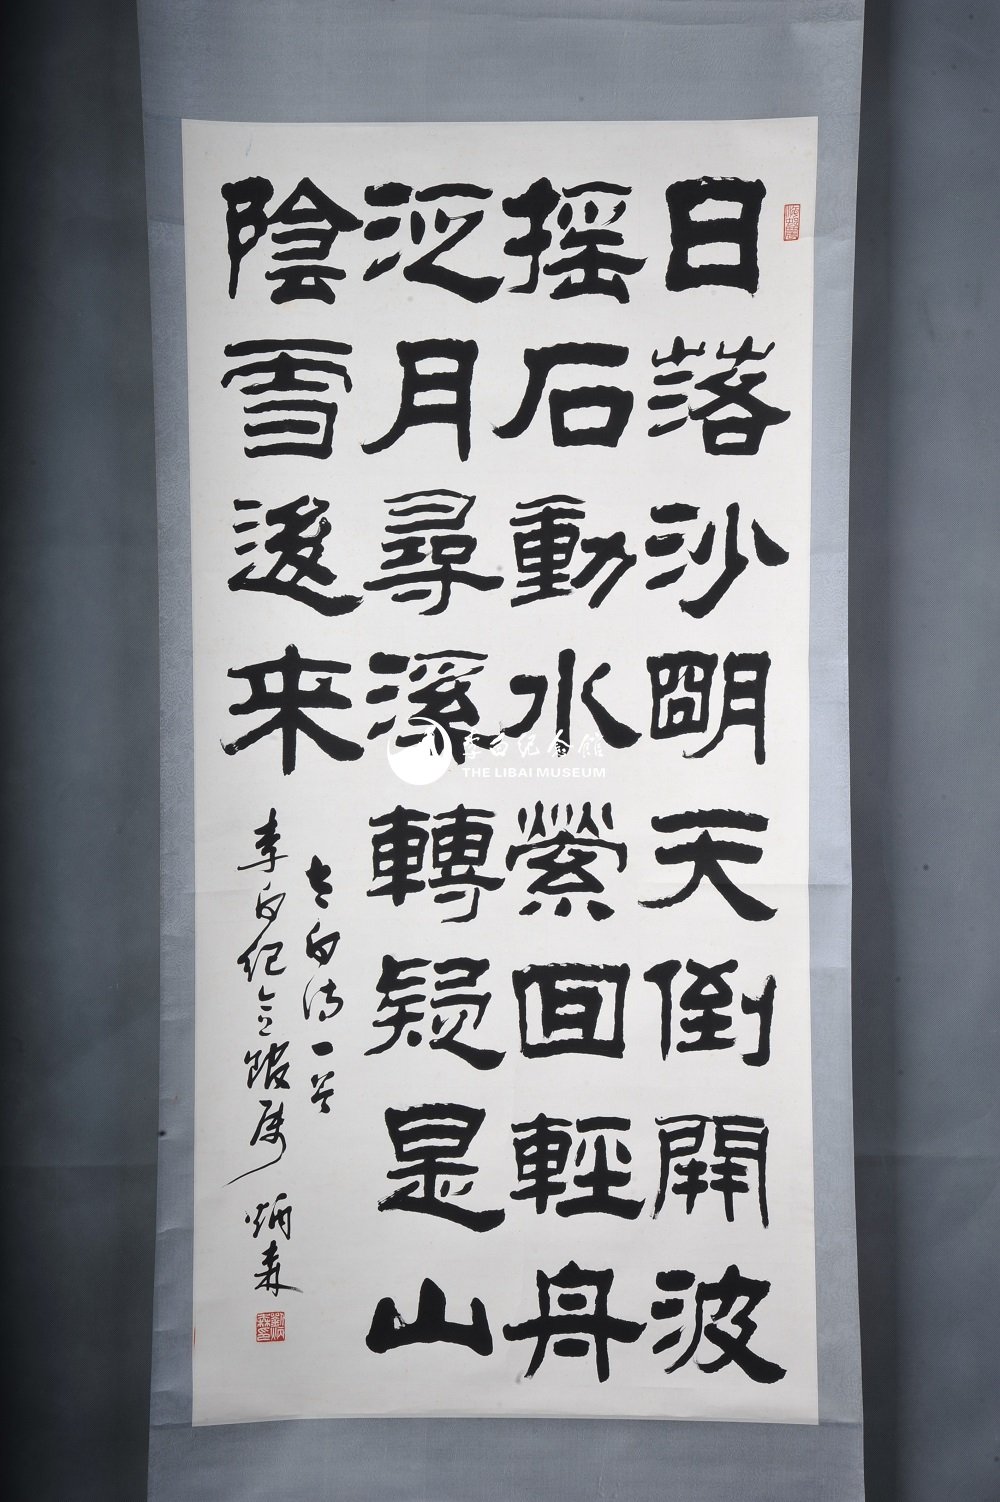 日落沙明天倒開波
摇石動水縈回輕舟
泛月尋溪轉疑是山
陰雪後来
太白诗一首
李白纪念馆属 炳森
劉炳森印
李白纪念館
THE LIBAI MUSEUM